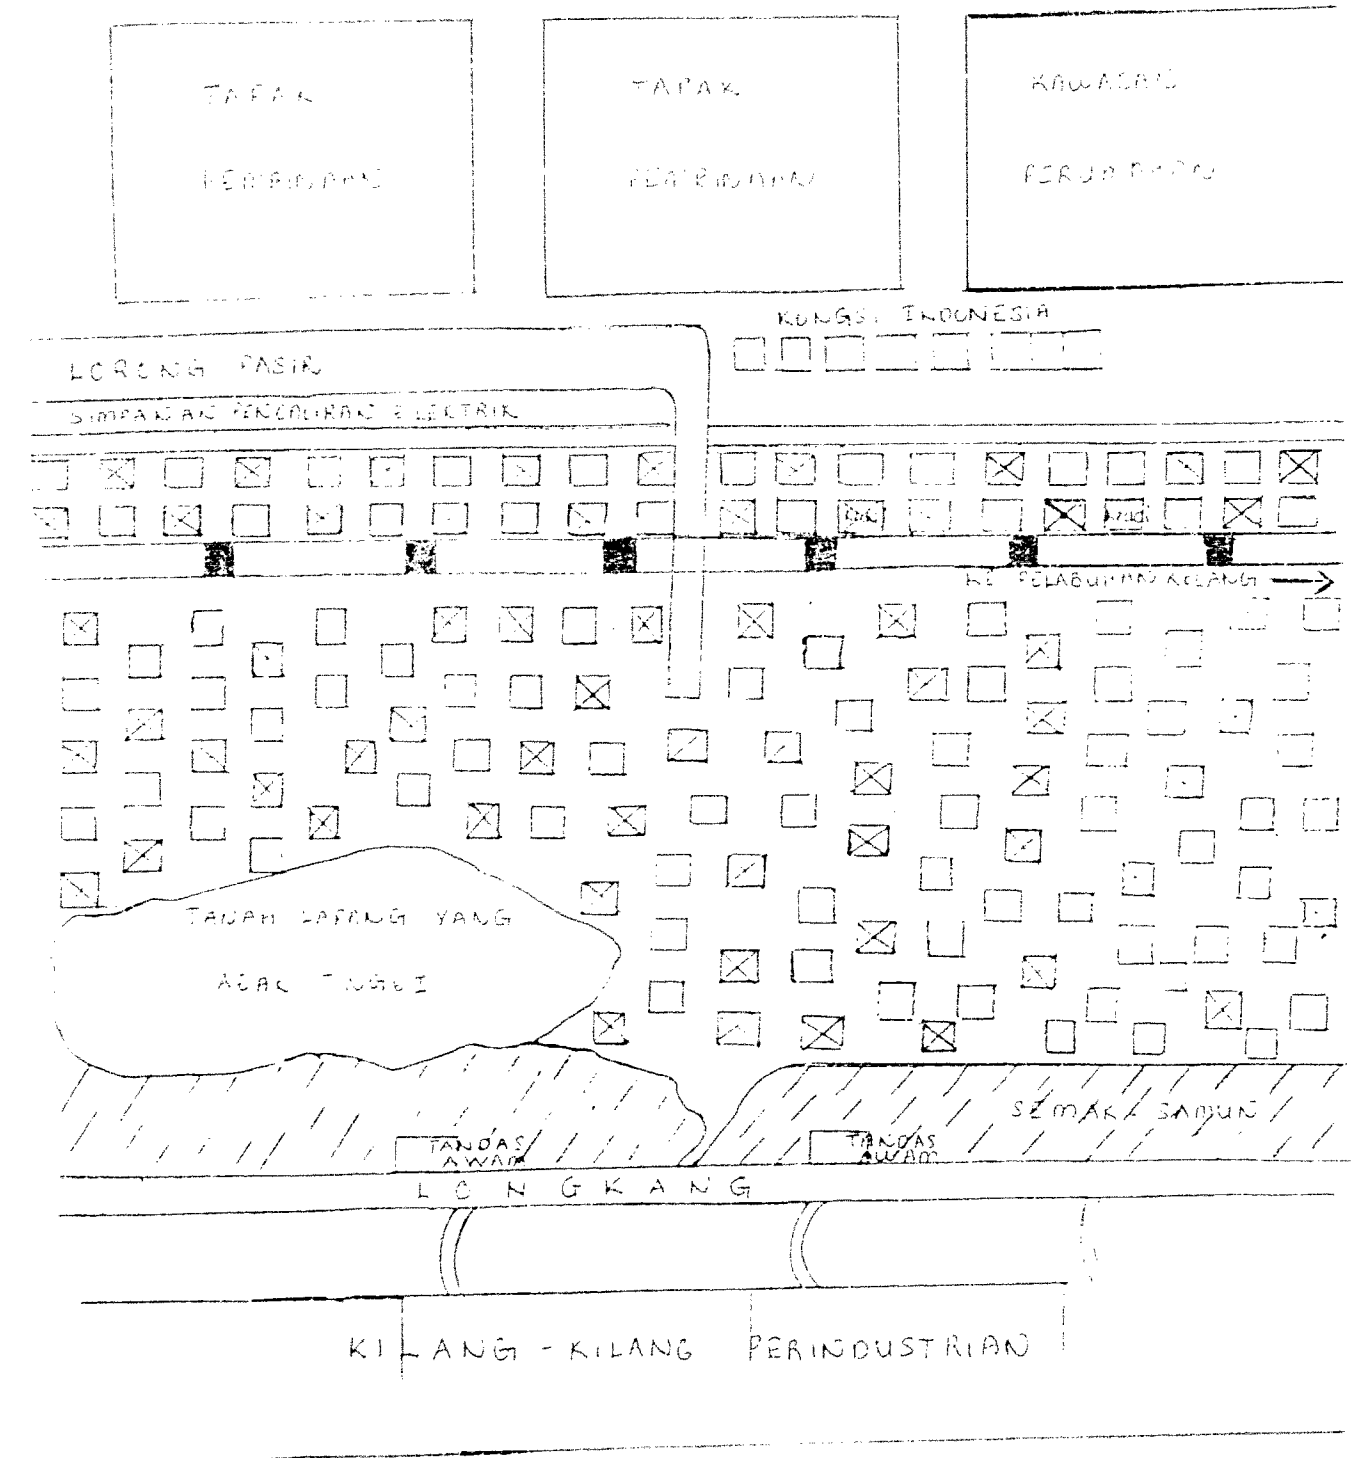 TAPAK
PEMBINAAN
TAPAK
PEMBINAAN
KAWASAN
PERUMAHAN
KONGSI INDONESIA
LORONG PASIR
SIMPANAN PENCALIRAN ELEKTRIK
KE PELABUHAN KELANG
TANAH LAPANG YANG
AGAK TINGGI
SEMAK SAMUN
TANDAS
AWAM
TANDAS
AWAM
LONGKANG
KILANG-KILANG PERINDUSTRIAN